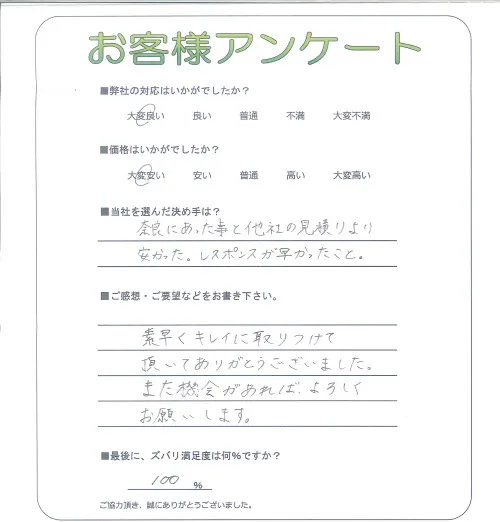 お客様アンケート
■弊社の対応はいかがでしたか？
大変良い 良い 普通 不満 大変不満
■価格はいかがでしたか？
大変安い 安い 普通 高い 大変高い
■当社を選んだ決め手は？
奈良にあった事と他社の見積りより
安かった。レスポンスが早かったこと。
■ご感想・ご要望などをお書き下さい。
素早くキレイに取りつけて
頂いてありがとうございました。
また機会があれば、よろしく
お願いします。
■最後に、ズバリ満足度は何%ですか？
100 %
ご協力頂き、誠にありがとうございました。